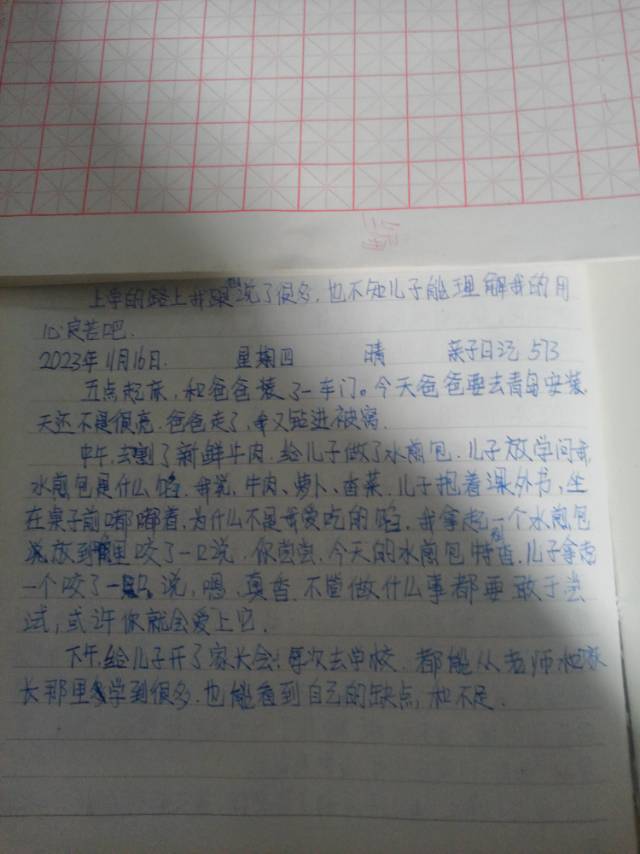 上学的路上我跟他说了很多,也不知儿子能理解我的用
心良苦吧.
2023年11月16日. 星期四 晴 亲子日记 513
五点起床,和爸爸装了一车门。今天爸爸要去青岛安装,
天还不是很亮.爸爸走了,我又钻进被窝.
中午,去割了新鲜牛肉.给儿子做了水煎包.儿子放学问我
水煎包是什么馅.我说,牛肉、萝卜、香菜.儿子抱着课外书,坐
在桌子前嘟嘟着,为什么不是我爱吃的馅.我拿起一个水煎包
放到嘴里咬了一口说.你尝尝.今天的水煎包特香.儿子拿起
一个咬了一口,说,嗯.真香.不管做什么事都要敢于尝
试,或许你就会爱上它.
下午,给儿子开了家长会!每次去学校.都能从老师和家
长那里学到很多.也能看到自己的缺点,和不足.